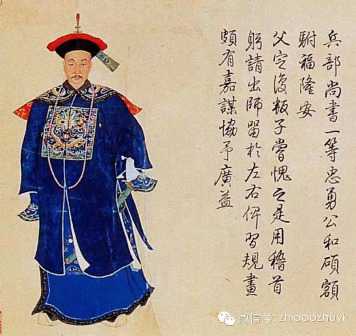 兵部尚書一等忠勇公和碩額
駙福隆安
父定復叛子嘗愧之是用稽首
躬請出師留於左右俾習規畫
頗有嘉謀協予廣益
微信号: